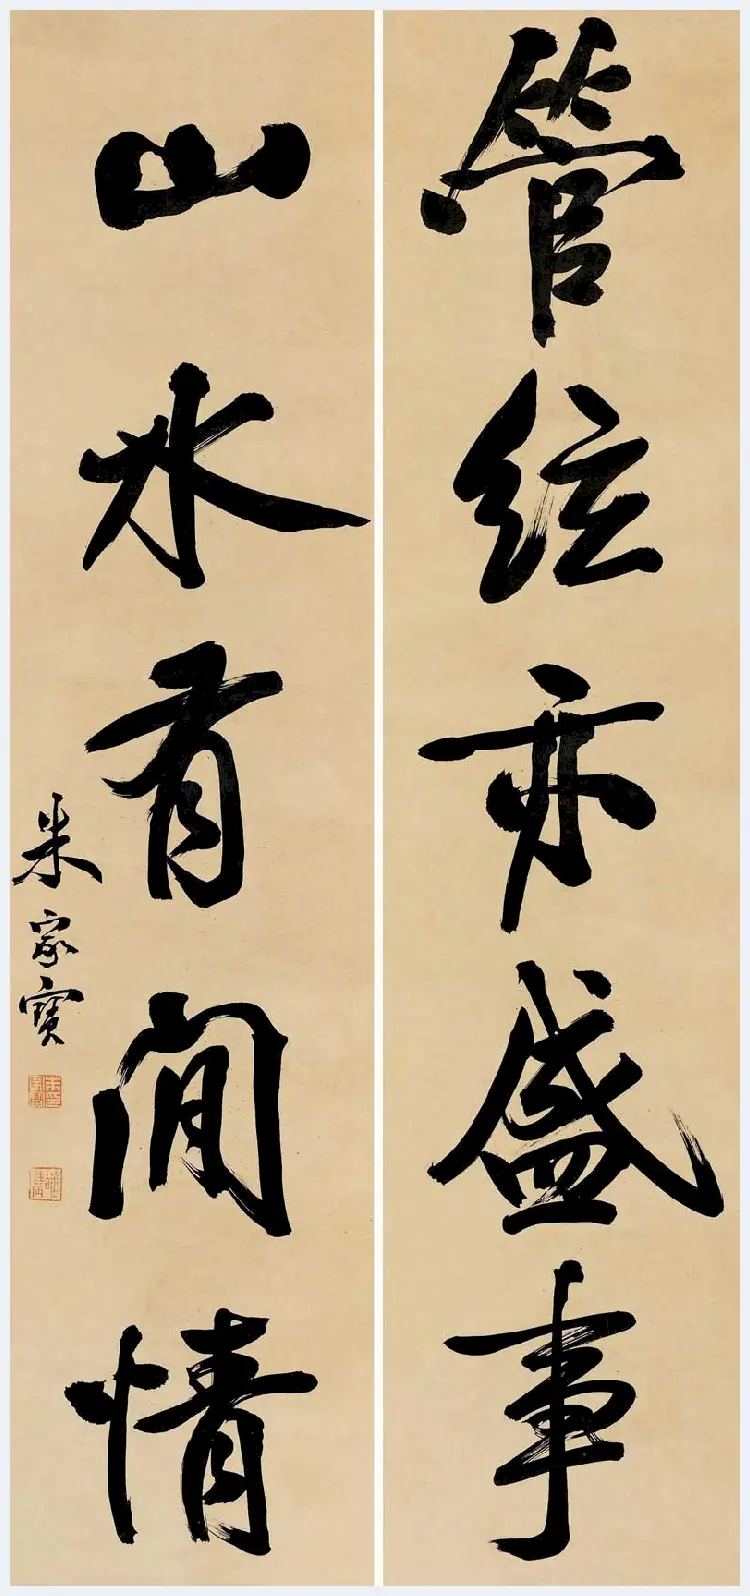 管絃亦盛事
山水有閒情
朱家寶